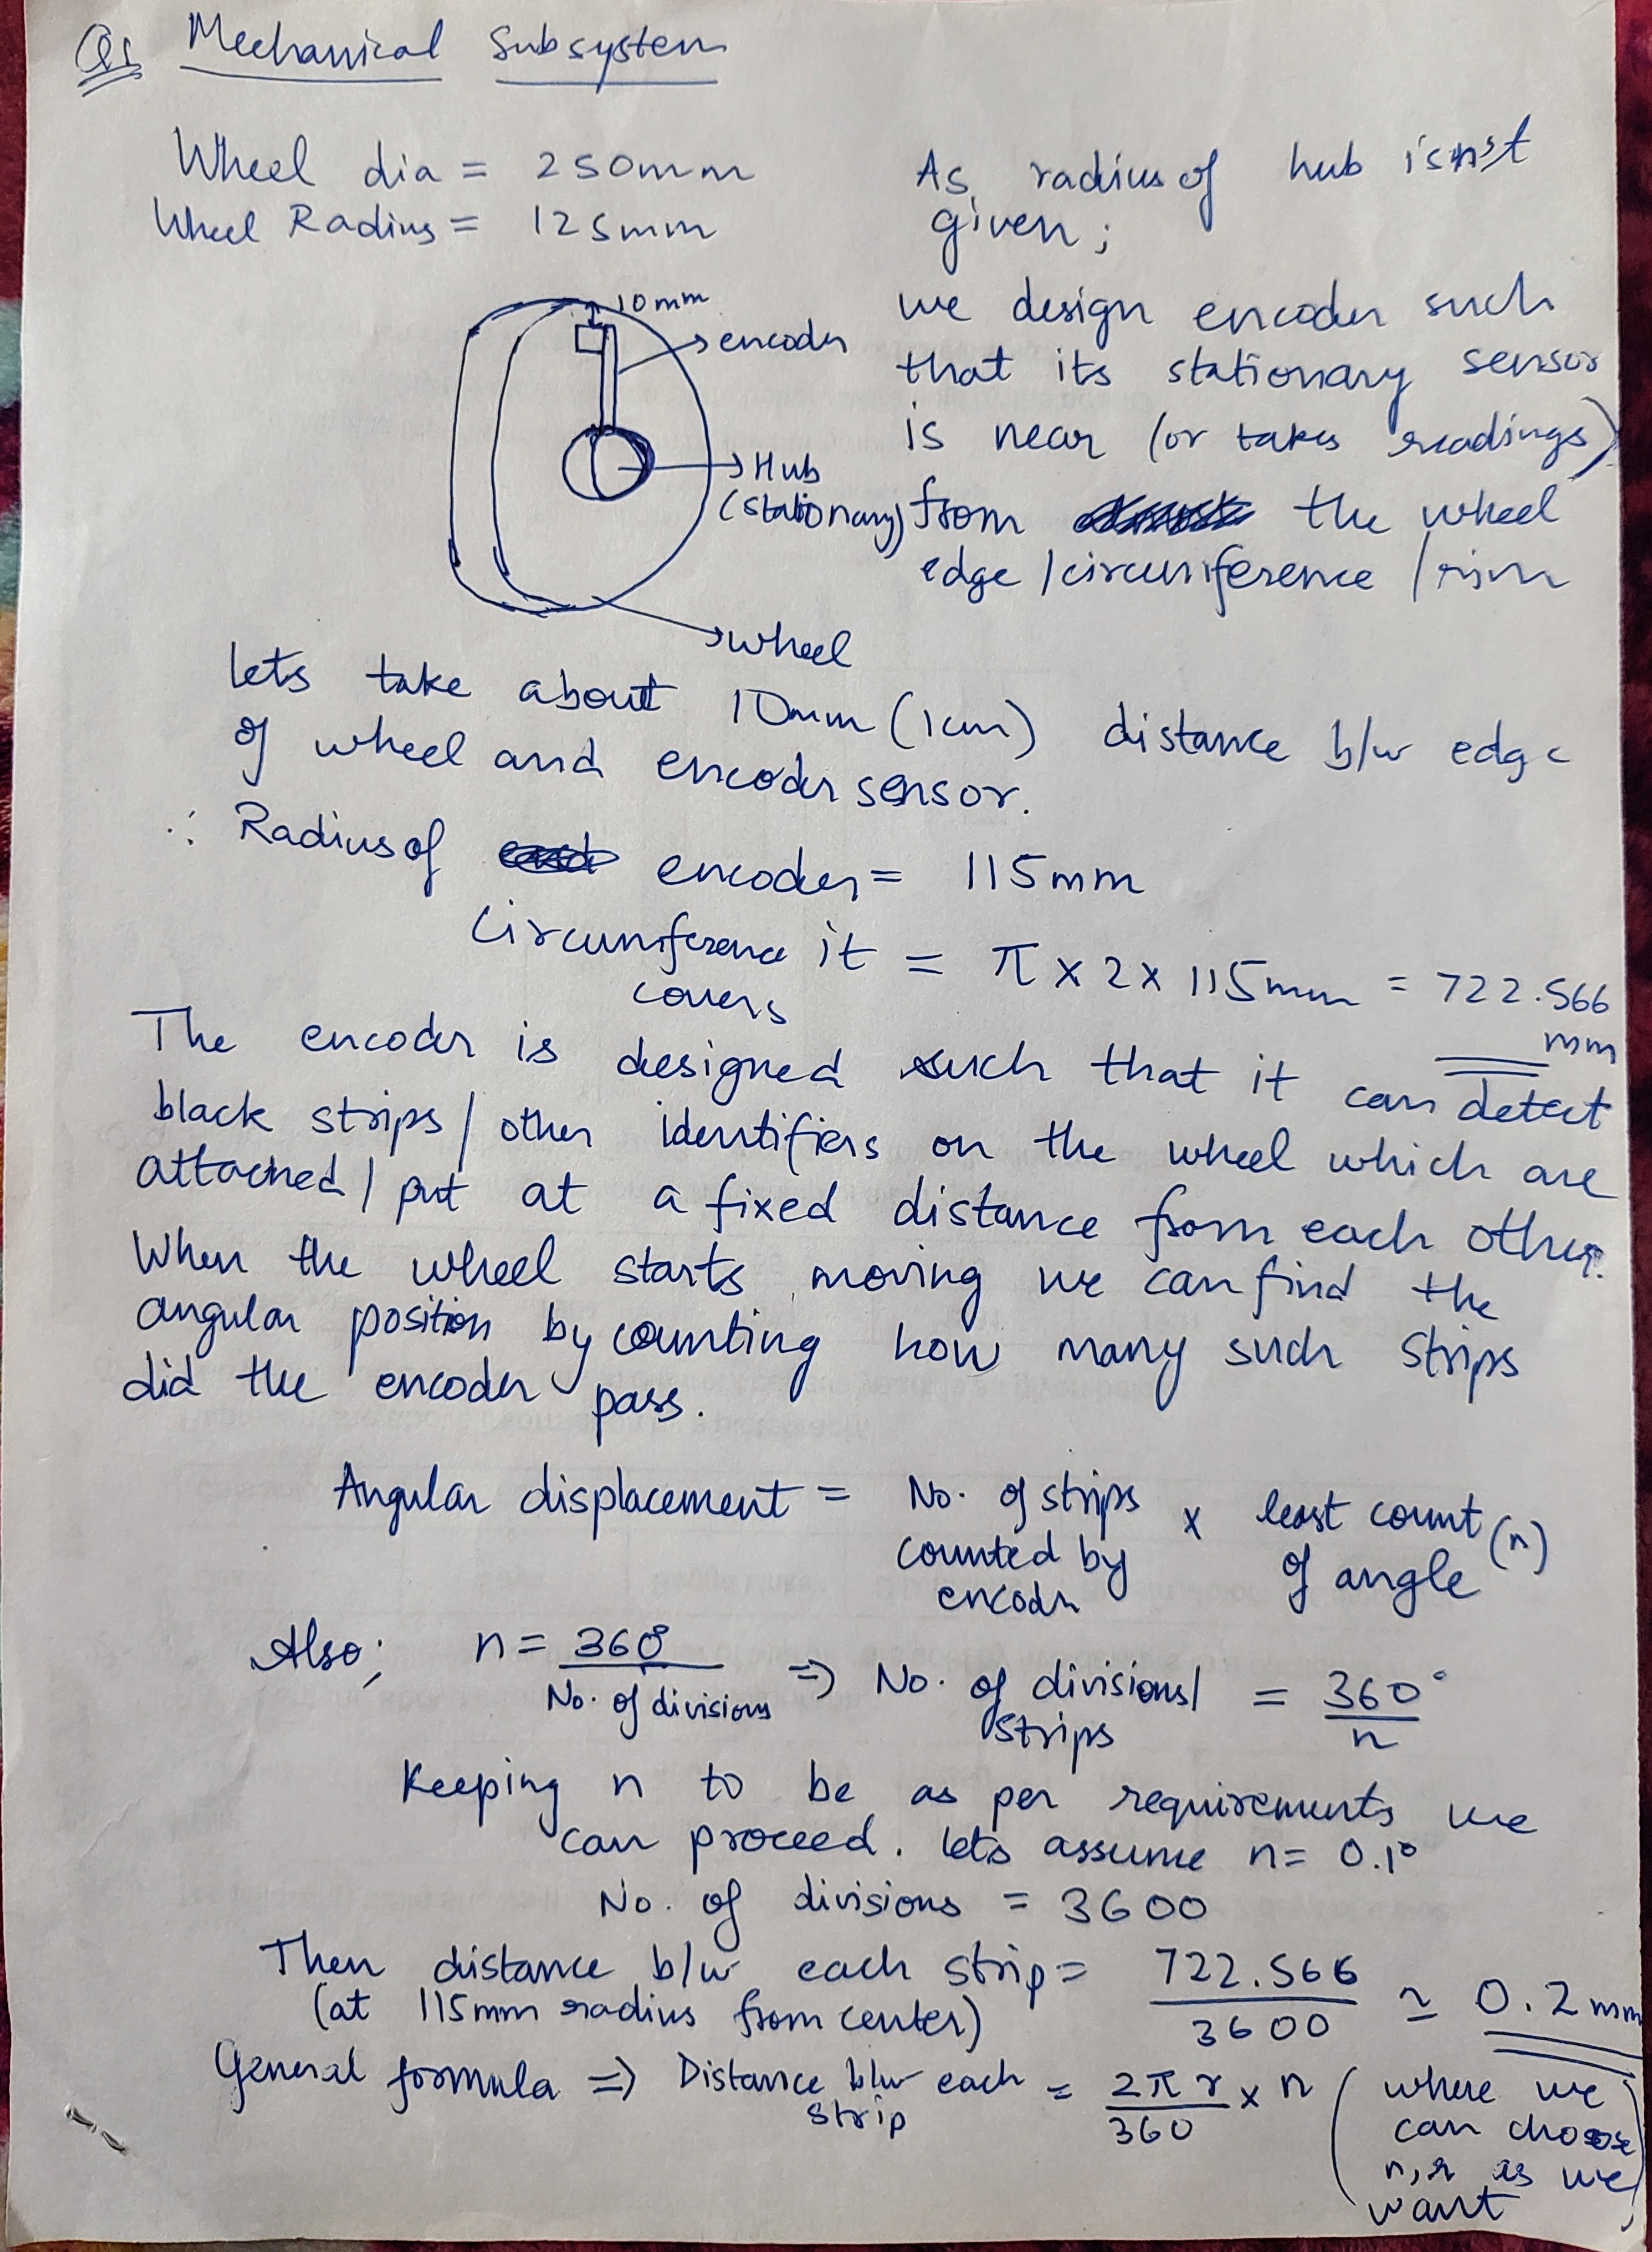 Q1 Mechanical Subsystem
Wheel dia = 250mm
Wheel Radius = 125mm
As radius of hub isn't
given;
we design encoder such
that its stationary sensor
is near (or takes readings)
from the wheel
edge/circumference/rim
10mm
encoder
Hub
(stationary)
wheel
lets take about 10mm (1cm) distance b/w edge
of wheel and encoder sensor.
∴ Radius of encoder = 115mm
Circumference it covers = π x 2 x 115mm = 722.566 mm
The encoder is designed such that it can detect
black strips/other identifiers on the wheel which are
attached/put at a fixed distance from each other.
When the wheel starts moving we can find the
angular position by counting how many such strips
did the encoder pass.
Angular displacement = No. of strips counted by encoder x least count of angle (n)
Also; n = 360°/No. of divisions => No. of divisions/strips = 360°/n
Keeping n to be as per requirements we
can proceed. lets assume n = 0.1°
No. of divisions = 3600
Then distance b/w each strip = 722.566/3600 ≃ 0.2mm
(at 115mm radius from center)
General formula => Distance b/w each strip = 2πr/360 x n (where we can choose n, r as we want)